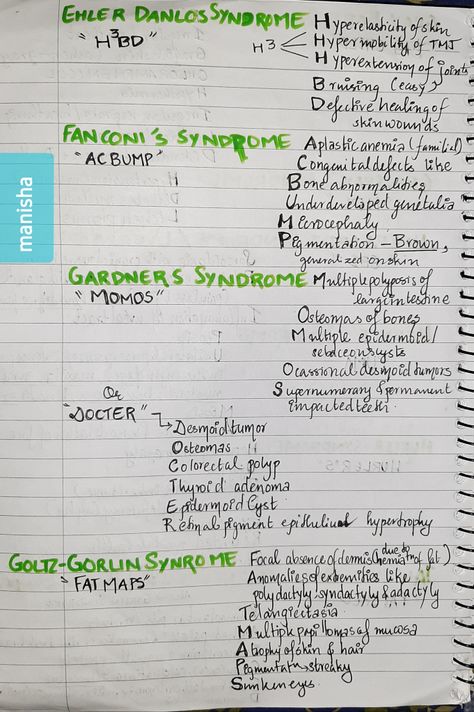 EHLER DANLOS SYNDROME Hyperelasticity of skin
"H³BD" H3 Hypermobility of TMJ
Hyperextension of joints
Bruising (easy)
Defective healing of
skin wounds
FANCONI'S SYNDROME Aplastic anemia (familial)
"AC BUMP" Congenital defects like
Bone abnormalities
Underdeveloped genetalia
Microcephaly
Pigmentation - Brown,
generalized on skin
manisha
GARDNER'S SYNDROME Multiple polyposis of
large intestine
"MOMOS"
Osteomas of bones
Multiple epidermoid/
sebaceous cysts
Ocassional desmoid tumors
Or Supernumerary & permanent
impacted teeth.
"DOCTER" → Desmoid tumor
Osteomas
Colorectal polyp
Thyroid adenoma
Epidermoid Cyst
Retinal pigment epithelium hypertrophy
GOLTZ-GORLIN SYNROME Focal absence of dermis (due to of fat)
"FAT MAPS" Anomalies of extremities like
polydactyly, syndactyly & adactyly
Telangiectasia
Multiple papillomas of mucosa
Atrophy of skin & hair
Pigmentatn → streaky
Sunken eyes.